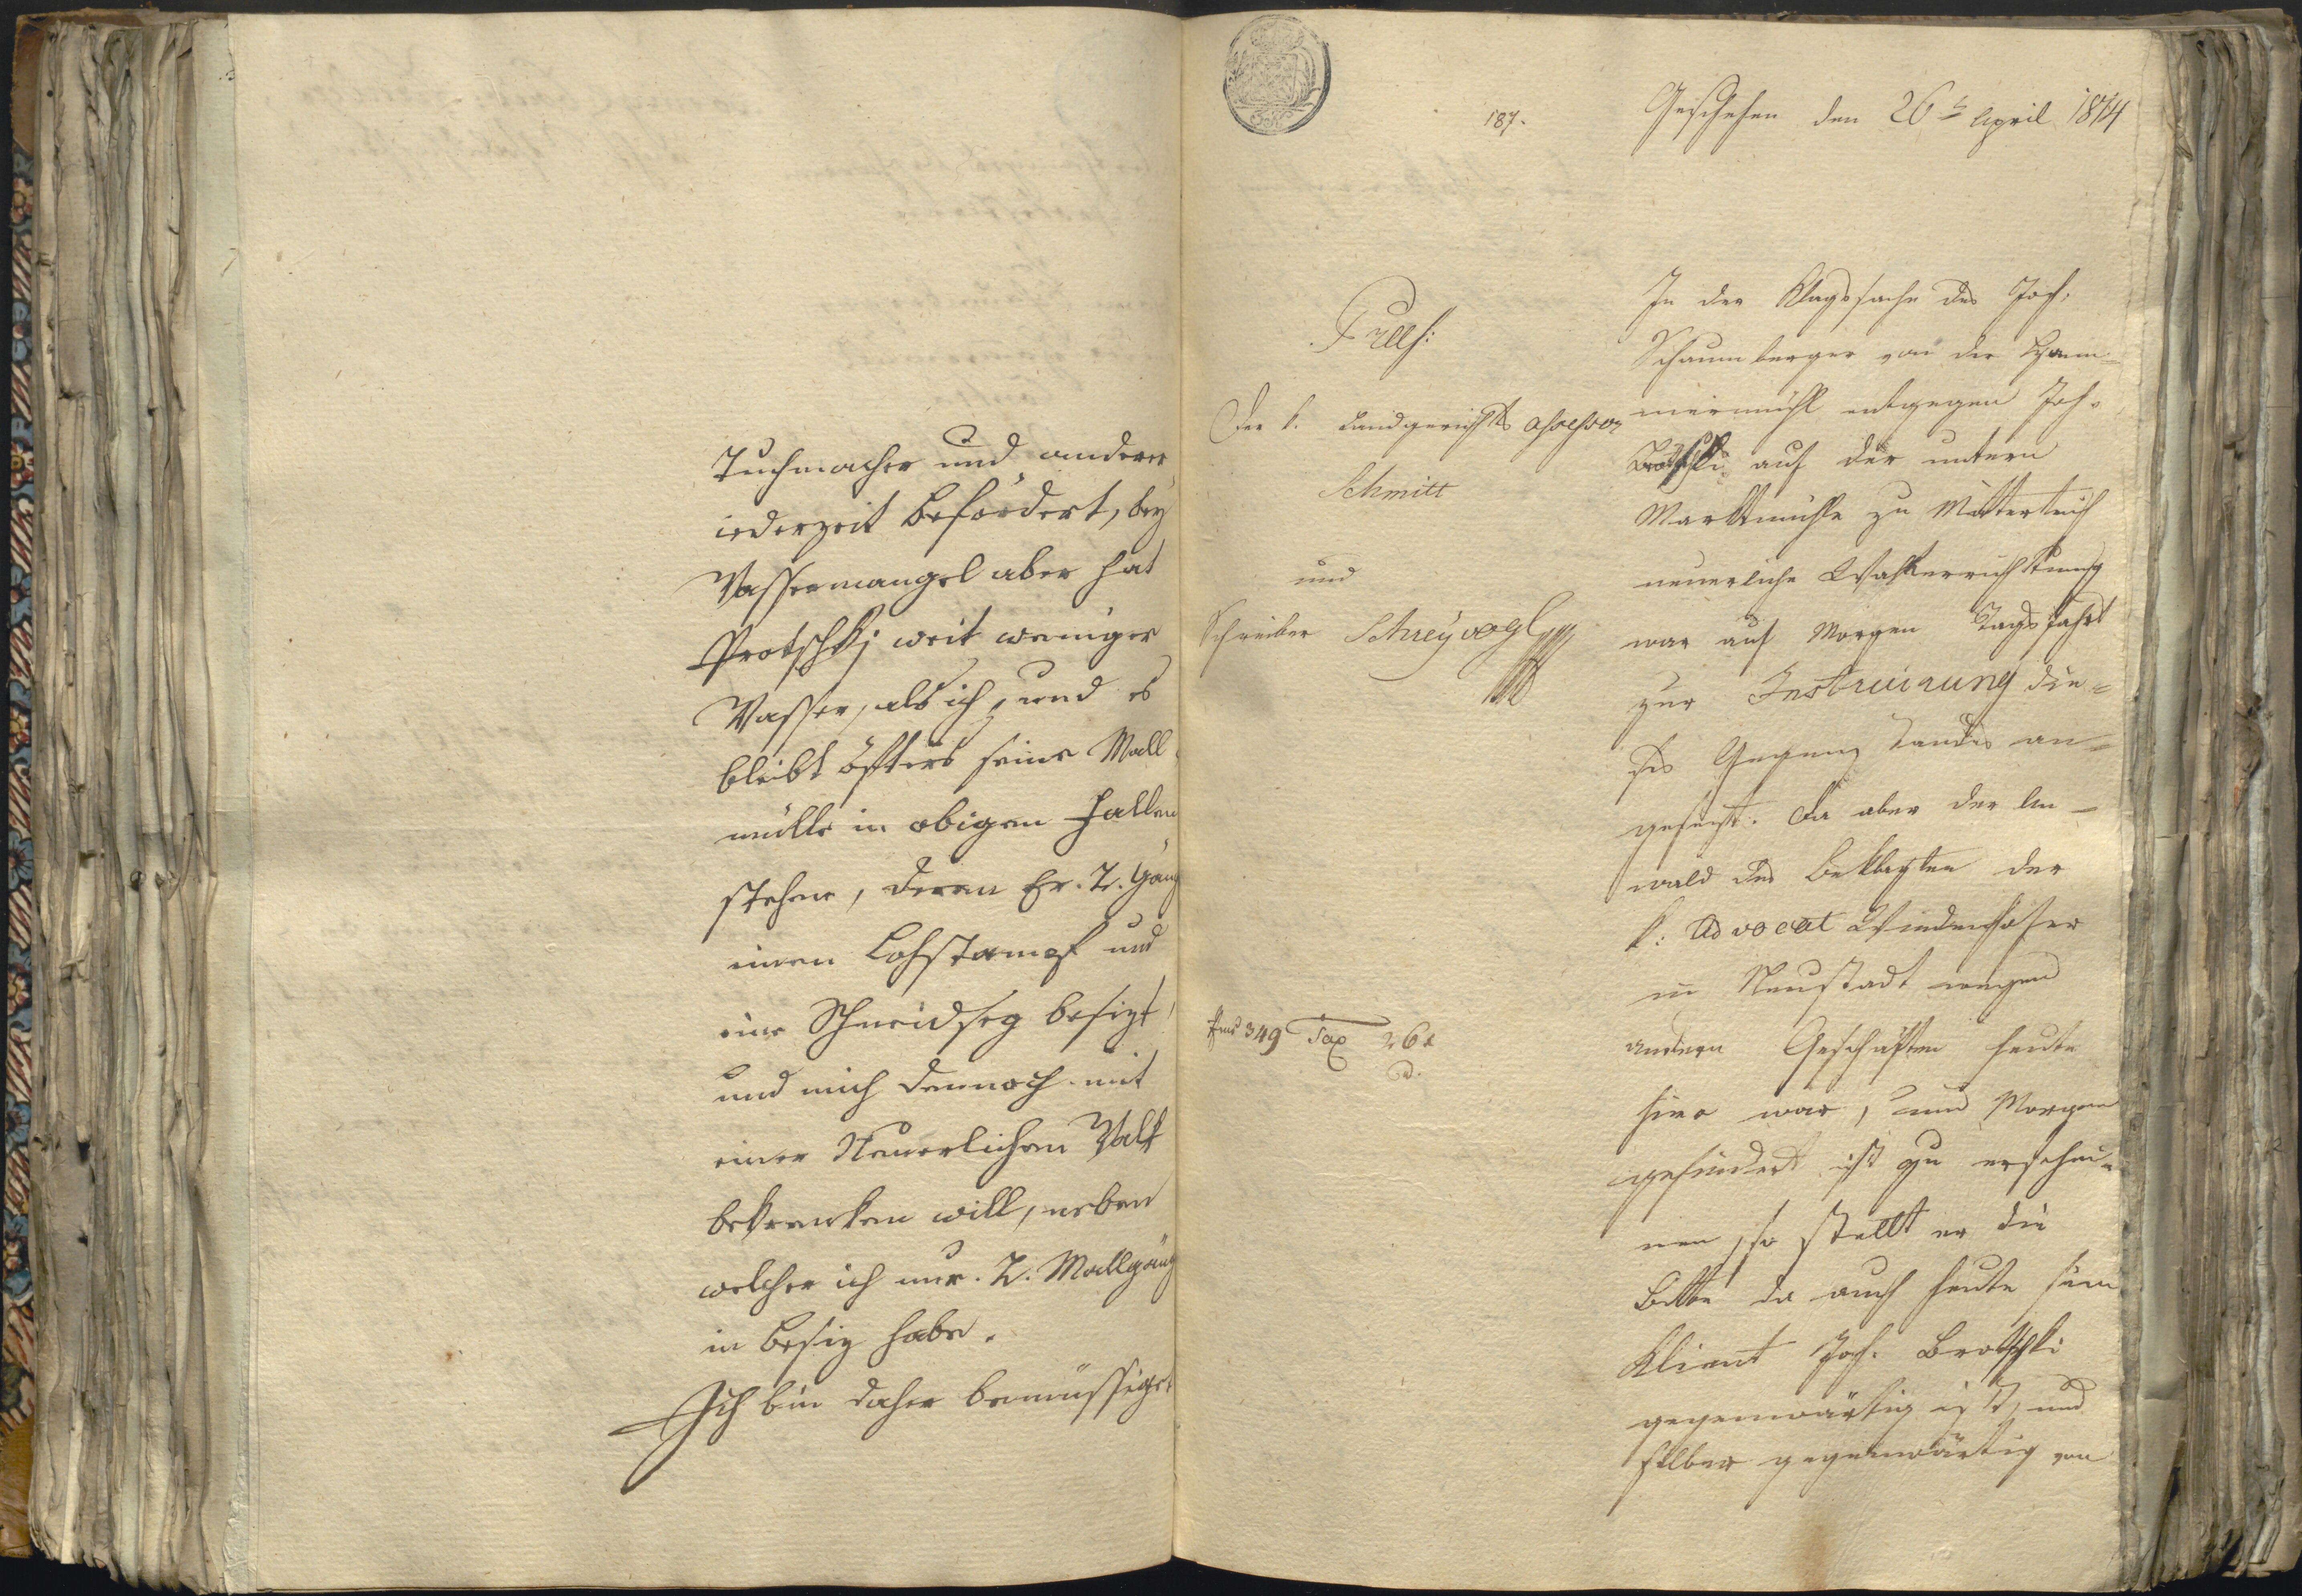 Tuchmacher und anderer
iederzeit befördert, bey
Wassermangel aber hat
Protschkj weit weniger
Wasser, als ich, und es
bleibt öfters seine Mall
mülle in obigen Fallen
stehen, deren Er. 2. Gäng
einen Lohstampf und
eine Schneidseg besizt,
und mich dennoch mit
einer Neuerlichen Walk
bekrenken will, neben
welcher ich nur. 2. Mallgäng
in besiz habe.
Ich bin daher bemüssiget
187.
Geschehen den 26t April 1814
Praes:
Der k. Landgerichts assessor
Schmitt
und
Schreiber Schreyvogl
349 Tax 26 x
In der Klagssache des Joh.
Schaumberger von der Ham=
mermühl entgegen Joh.
auf der untern
Marktmühle zu Mitterteich
neuerliche Walkerrichtung
war auf Morgen Tagsfahrt
zur Instruirung die=
ses Gegenstandes an=
gesezt. Da aber der An=
wald des Beklagten der
k: Advocat Windenhofer
in Neustadt wegen
andern Geschäften heute
hier war, und Morgen
gehindert ist zu erschei=
nen, so stellt er die
Bitte da auch heute sein
Klient Joh. Brotschki
gegenwärtig ist, und
selber gegenwärtig von